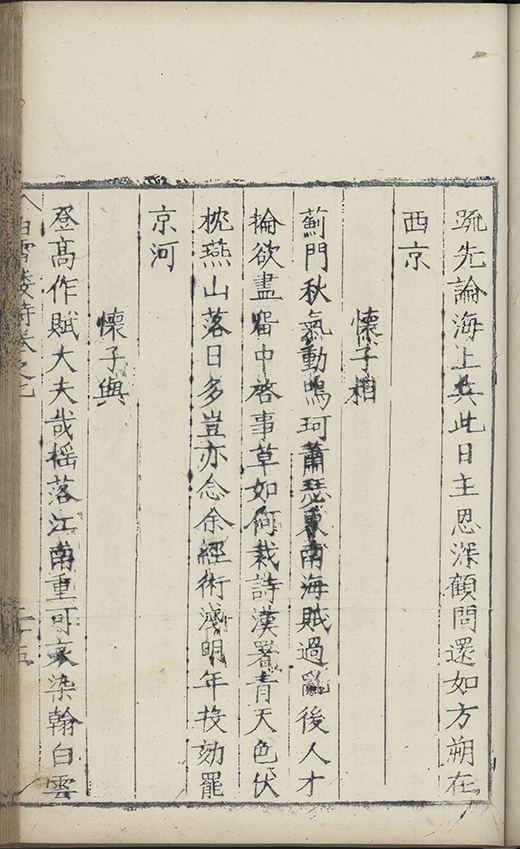 疏先論海上兵此日主恩深顧問還如方朔在
西京
懷子相
薊門秋氣動鳴珂蕭瑟東南海賦過亂後人才
掄欲盡窗中啓事草如何裁詩漢署青天色伏
枕燕山落日多豈亦念余經術淺明年投劾罷
京河
懷子與
登高作賦大夫哉搖落江南重可哀染翰白雲
白雪樓詩卷之七
二十五